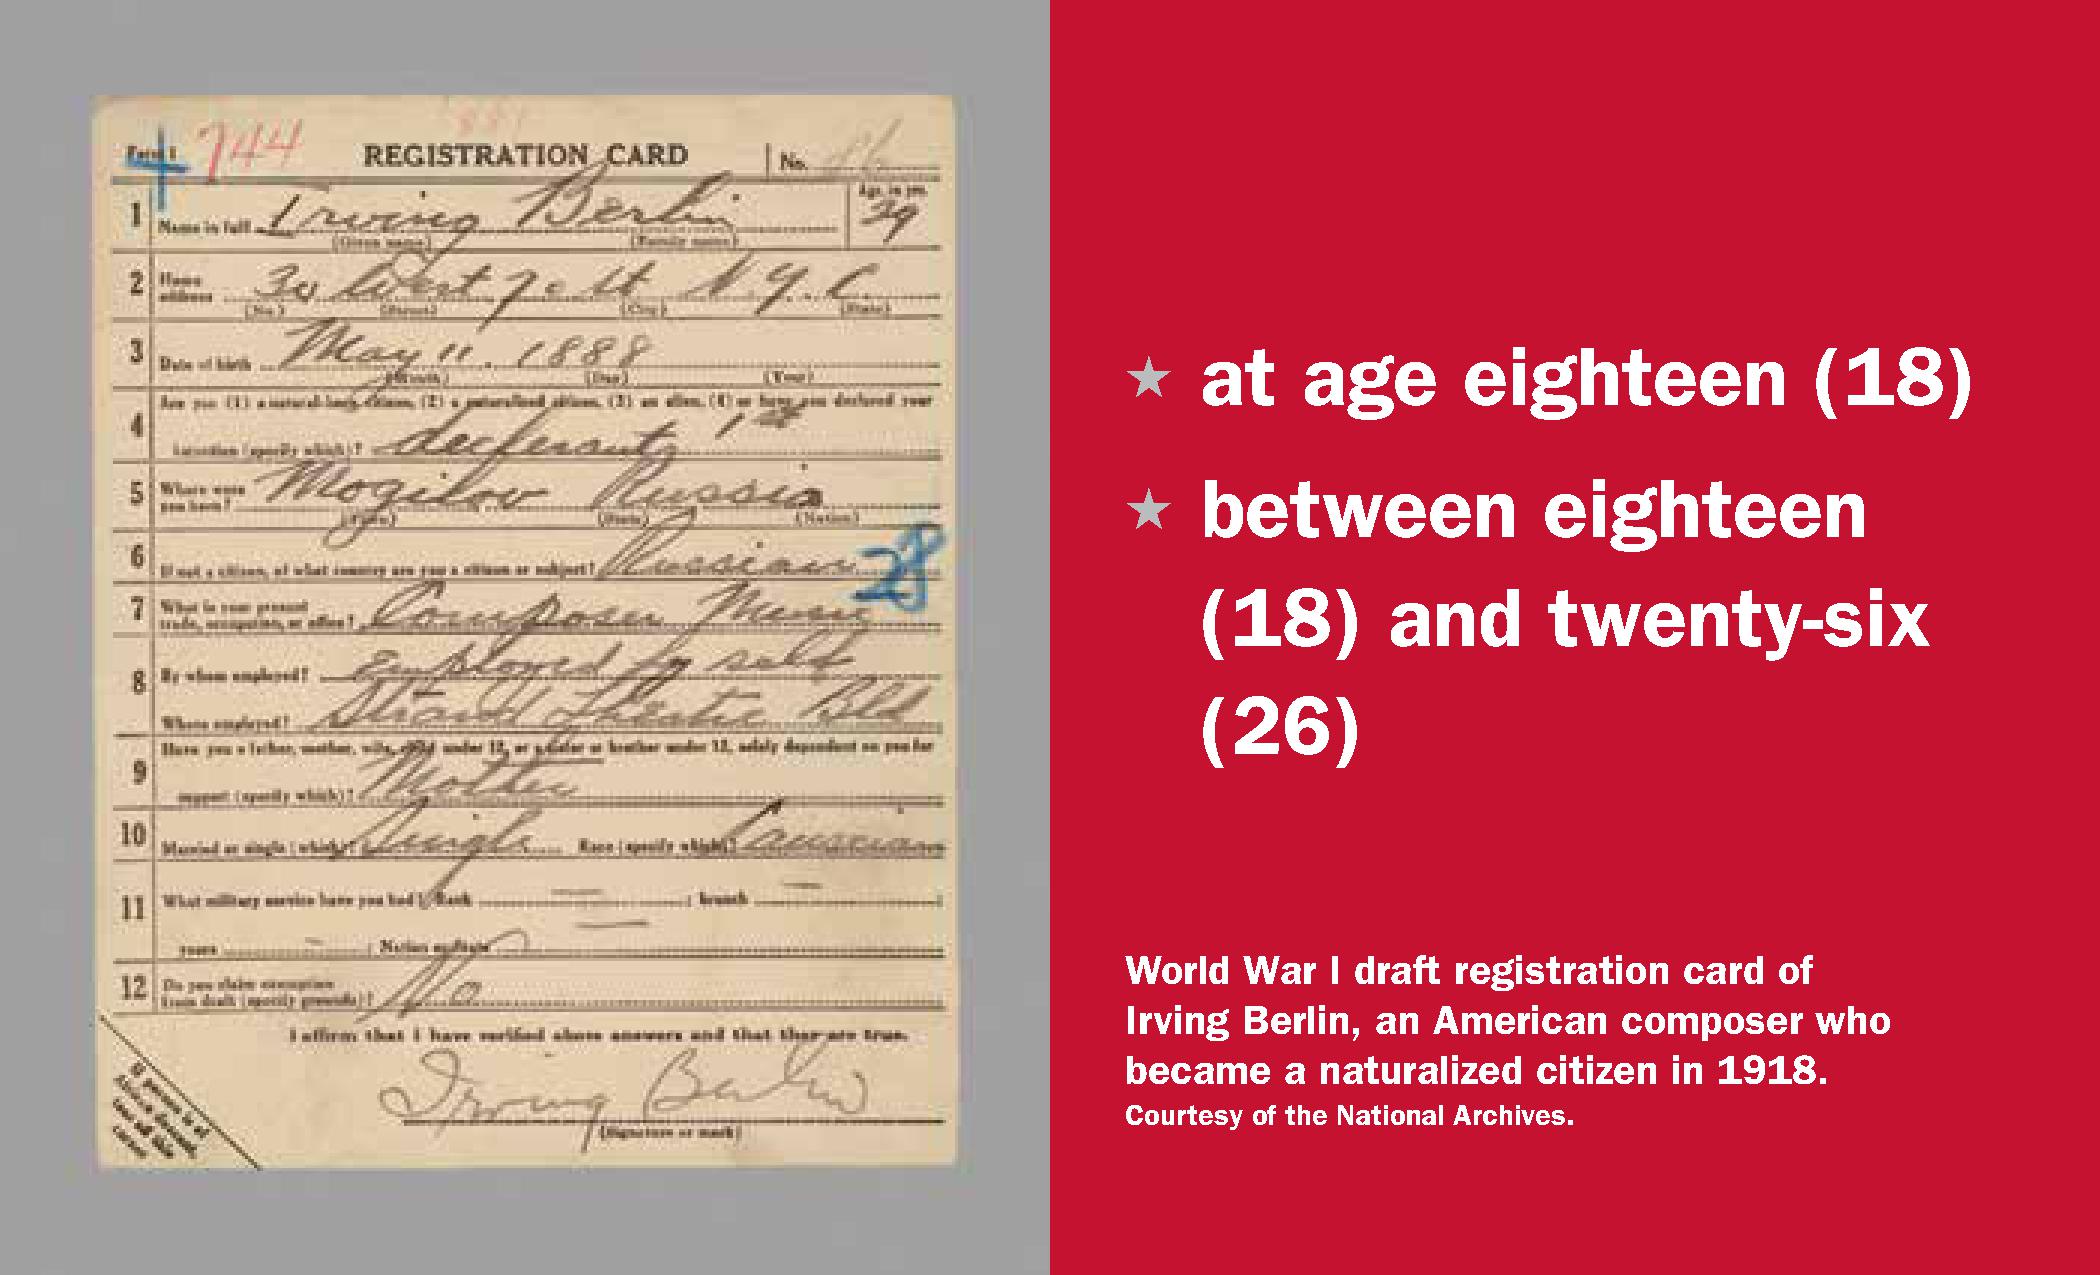 Form 1
744
REGISTRATION CARD
No.
1
Name in full Irving Berlin
(Given name) (Family name)
Age, in yrs.
29
2
Home
address 30 West 70 st N.Y.C.
(No.) (Street) (City) (State)
3
Date of birth May 11. 1888
(Month) (Day) (Year)
4
Are you (1) a natural-born citizen, (2) a naturalized citizen, (3) an alien, (4) or have you declared your
intention (specify which)? 1st
5
Where were
you born? Mogilov Russia
(Town) (State) (Nation)
6
If not a citizen, of what country are you a citizen or subject? Russian
28
7
What is your present
trade, occupation, or office? Composer Music
8
By whom employed? employed by self
Where employed? Strand Theatre Bld
9
Have you a father, mother, wife, child under 12, or a sister or brother under 12, solely dependent on you for
support (specify which)? Mother
10
Married or single (which)? Single Race (specify which)? Caucasian
11
What military service have you had? Rank ; branch ;
years ; Nation or State
12
Do you claim exemption
from draft (specify grounds)? No
I affirm that I have verified above answers and that they are true.
Irving Berlin
(Signature or mark)
If person is of
African descent,
tear off this
corner
★ at age eighteen (18)
★ between eighteen
(18) and twenty-six
(26)
World War I draft registration card of
Irving Berlin, an American composer who
became a naturalized citizen in 1918.
Courtesy of the National Archives.